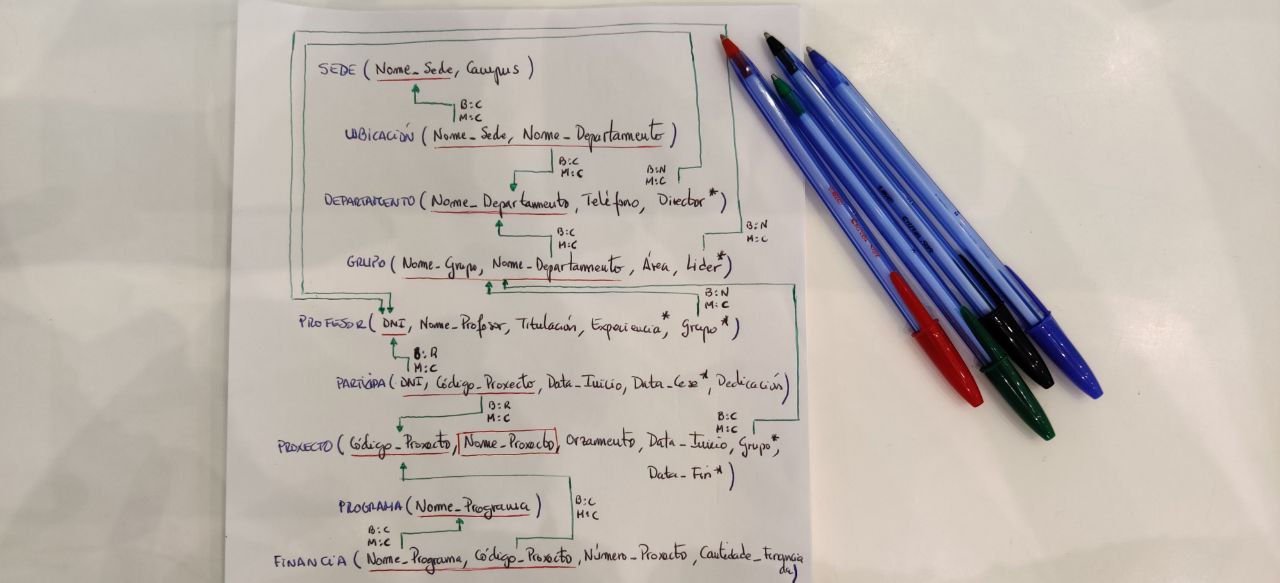 SEDE ( Nome_Sede, Campus )
B:C
M:C
UBICACIÓN ( Nome_Sede, Nome_Departamento )
B:C
M:C
B:N
M:C
DEPARTAMENTO ( Nome_Departamento, Teléfono, Director* )
B:C
M:C
B:N
M:C
GRUPO ( Nome_Grupo, Nome_Departamento, Área, Lider* )
B:N
M:C
PROFESOR ( DNI, Nome_Profesor, Titulación, Experiencia*, Grupo* )
B:R
M:C
PARTICIPA ( DNI, Código_Proxecto, Data_Inicio, Data_Cese*, Dedicación )
B:R
M:C
B:C
M:C
PROXECTO ( Código_Proxecto, Nome_Proxecto, Orzamento, Data_Inicio, Grupo*,
Data_Fin* )
B:C
M:C
PROGRAMA ( Nome_Programa )
B:C
M:C
FINANCIA ( Nome_Programa, Código_Proxecto, Número_Proxecto, Cantidade_Financia
da )